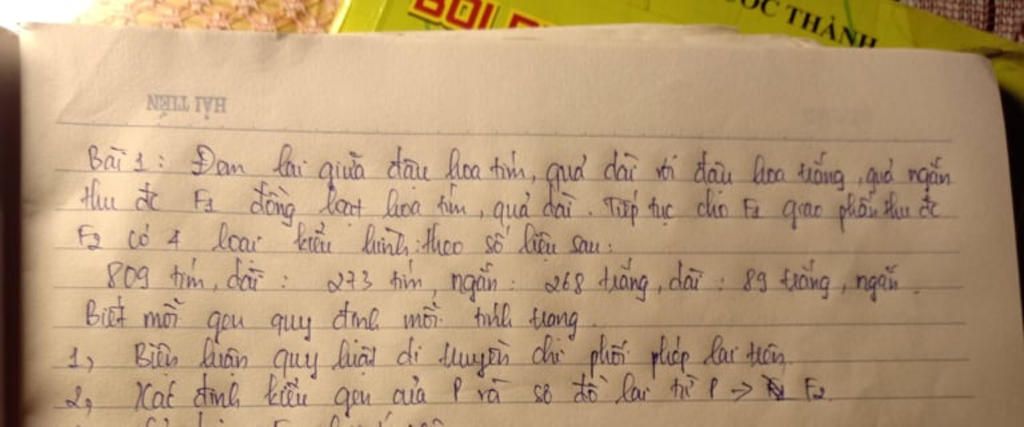 BỒI
ỐC THÀNH
HẢI TIẾN
Bài 1: Đem lai giữa đậu hoa tím, quả dài với đậu hoa trắng, quả ngắn
thu đc F1 đồng loạt hoa tím, quả dài. Tiếp tục cho F1 giao phấn thu đc
F2 có 4 loại kiểu hình theo số liệu sau:
809 tím, dài : 273 tím, ngắn : 268 trắng, dài : 89 trắng, ngắn.
Biết mỗi gen quy định mỗi tính trạng.
1, Biện luận quy luật di truyền chi phối phép lai trên
2, Xác định kiểu gen của P và sơ đồ lai từ P → F2.